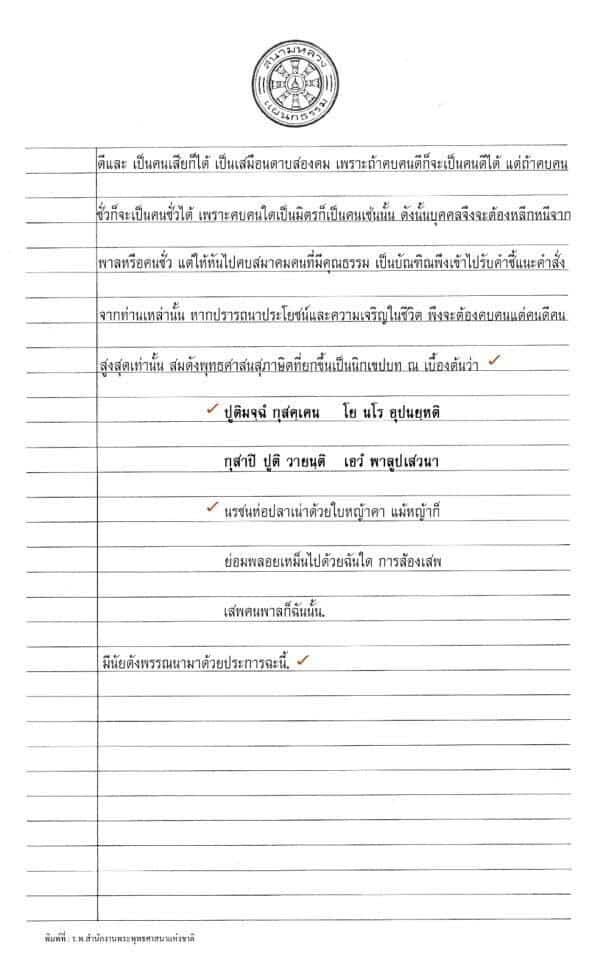 สนามหลวง
แผนกธรรม
ดีและ เป็นคนเสียก็ได้ เป็นเสมือนดาบสองคม เพราะถ้าคบคนดีก็จะเป็นคนดีได้ แต่ถ้าคบคน
ชั่วก็จะเป็นคนชั่วได้ เพราะคบคนใดเป็นมิตรก็เป็นคนเช่นนั้น ดังนั้นบุคคลจึงจะต้องหลีกหนีจาก
พาลหรือคนชั่ว แต่ให้หันไปคบสมาคมคนที่มีคุณธรรม เป็นบัณฑิณพึงเข้าไปรับคำชี้แนะคำสั่ง
จากท่านเหล่านั้น หากปรารถนาประโยชน์และความเจริญในชีวิต พึงจะต้องคบคนแต่คนดีคน
สูงสุดเท่านั้น สมดังพุทธศาสนสุภาษิตที่ยกขึ้นเป็นนิกเขปบท ณ เบื้องต้นว่า
ปูติมจฺฉํ กุสคฺเคน โย นโร อุปนยฺหติ
กุสาปิ ปูติ วายนฺติ เอวํ พาลูปเสวนา
นรชนห่อปลาเน่าด้วยใบหญ้าคา แม้หญ้าก็
ย่อมพลอยเหม็นไปด้วยฉันใด การส้องเสพ
เสพคนพาลก็ฉันนั้น.
มีนัยดังพรรณนามาด้วยประการฉะนี้.
พิมพ์ที่ : ร.พ.สำนักงานพระพุทธศาสนาแห่งชาติ